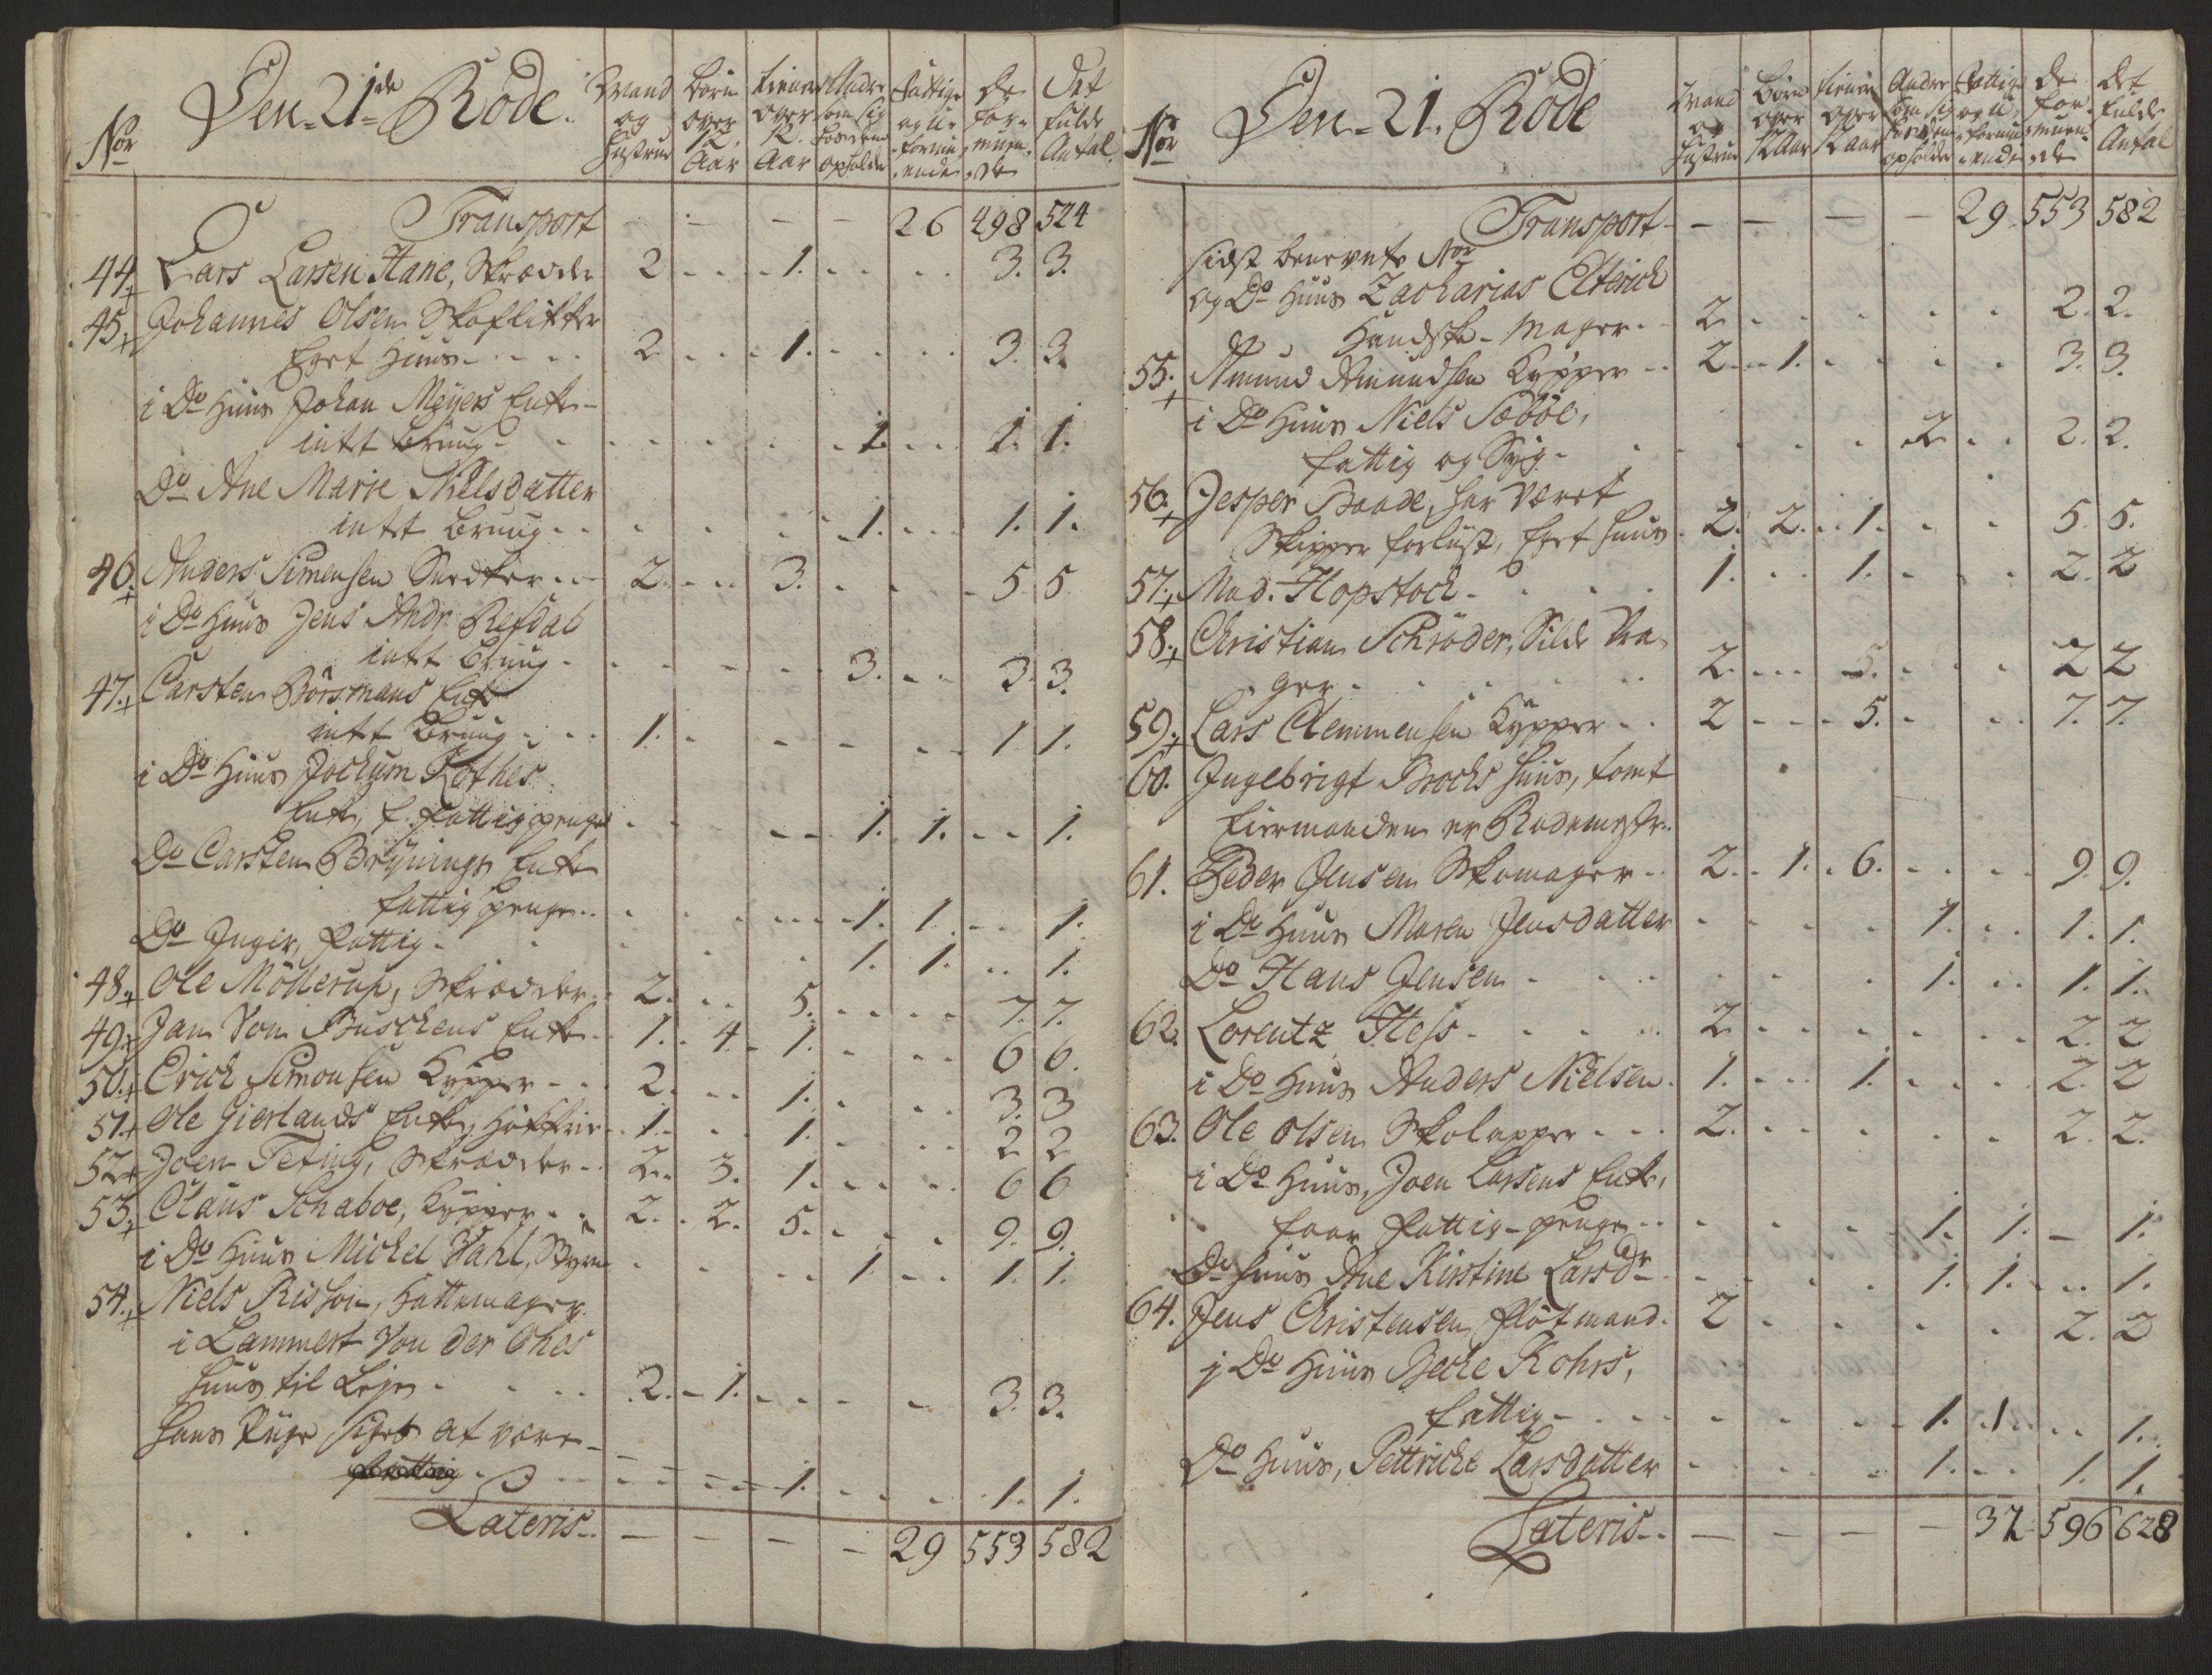 Den 21de Rode.
Nor
Mand og Hustrue
Børn over 12 Aar
tienere over 12. Aar
Andre som sig hos dem opholde
Fattige og U-formuende
De formuende
Det fulde Antal.
Transport - - - - 26 498 524
44. Lars Larsen Hane, Skrædder 2 1. 3. 3.
45. Johannes Olsen Skoflikker
Eget Huus 2 1. 3. 3.
i Do Huus Johan Meÿers Enke
intet bruug 1. 1. 1.
Do Ane Marie Nielsdatter
intet bruug 1. 1. 1.
46. Anders Simensen Snedker 2 3. 5 5
i Do Huus Jens Andr: Refdal
intet bruug 3. 3. 3.
47. Carsten Börsmans Enke
intet bruug 1. 1 1.
i Do Huus Jochum Röthes
Enke, f. Fattigpenge 1. 1. 1.
Do Carsten Brÿnings Enke
fattig penge 1. 1. 1.
Do Inger, Fattig 1. 1. 1.
48. Ole Möllerup, Skrædder 2. 5. 7. 7.
49. Jan Von Buschens Enke 1. 4. 1. 6 6.
50. Erich Simonsen Kÿpper 2. 1. 3. 3
51. Ole Gierlands Enke, Høkkrie 1. 1. 2 2
52. Joen Teting, Skrædder 2. 3. 1. 6 6
53. Claus Schaboe, Kÿpper 2. 2. 5. 9. 9.
i Do Huus Michel Vahl, 1. 1. 1.
54. Niels Risson, Hattemager
i Lammert Von der Ohes
Huus til Leje 2. 1. 3. 3.
Hans Pige siges at være
fattig 1. 1. 1.
Lateris - - - - 29 553 582
Den 21. Rode
Nor
Mand og Hustrue
Børn over 12 Aar
tienere over 12 aar
Andre som sig hos dem opholde
Fattige og U-formuende
De formuende
Det fulde Antal
Transport - - - - 29 553 582
sidst benevnte Nor
og Do Huus Zacharias Elterich
Handske-Mager 2 2. 2.
55. Amund Amundsen Kÿpper 2 1. 3. 3.
i Do Huus Niels Sæböe,
fattig og Syg 2 2. 2.
56. Jesper Baade, har været
Skipper forlist, Eget Huus 2. 2. 1. 5 5.
57. Mad. Hopstock 1. 1. 2. 2
58. Christian Schröder, Silde Vra-
ger 2. 5. 2 2
59. Lars Clemmensen Kÿpper 2 5. 7. 7.
60. Ingebrigt Brochs Huus, tomt
Eiermanden er Rodemester
61. Peder Jensen Skomager 2. 1. 6. 9. 9.
i Do Huus Maren Jensdatter 1. 1. 1.
Do Hans Jensen 1. 1. 1.
62. Lorentz Hess 2 2. 2
i Do Huus Anders Nielsen 1. 1. 2. 2
63. Ole Olsen Skolapper 2. 2. 2.
i Do Huus, Joen Larsens Enke,
faar Fattig-penge 1. 1. - 1.
Do Huus Ane Kirstine Larsdr 1. 1. 1.
64. Jens Christensen Flötmand 2 2. 2
i Do Huus Becke Kohrs,
fattig 1. 1. 1.
Do Huus, Pettriche Larsdatter 1. 1. 1.
Lateris - - - - 32 596 628